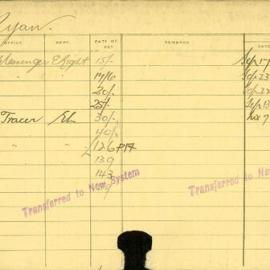 Ryan.
OFFICE DEPT. RATE OF PAY REMARKS DATE
Messenger E Light 15/- Sep 17
" " 17/6 Sep 23
" " 20/-
" " 25/-
Tracer El. 30/-
" " 40/-
£126
139
143
Transferred to New System
Transferred to Ne